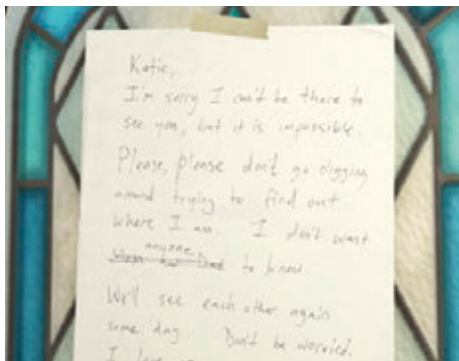 Katie,
I'm sorry I can't be there to
see you, but it is impossible.
Please, please don't go digging
around trying to find out
where I am. I don't want
anyone
Mom and Dad to know.
We'll see each other again
some day. Don't be worried.
I love